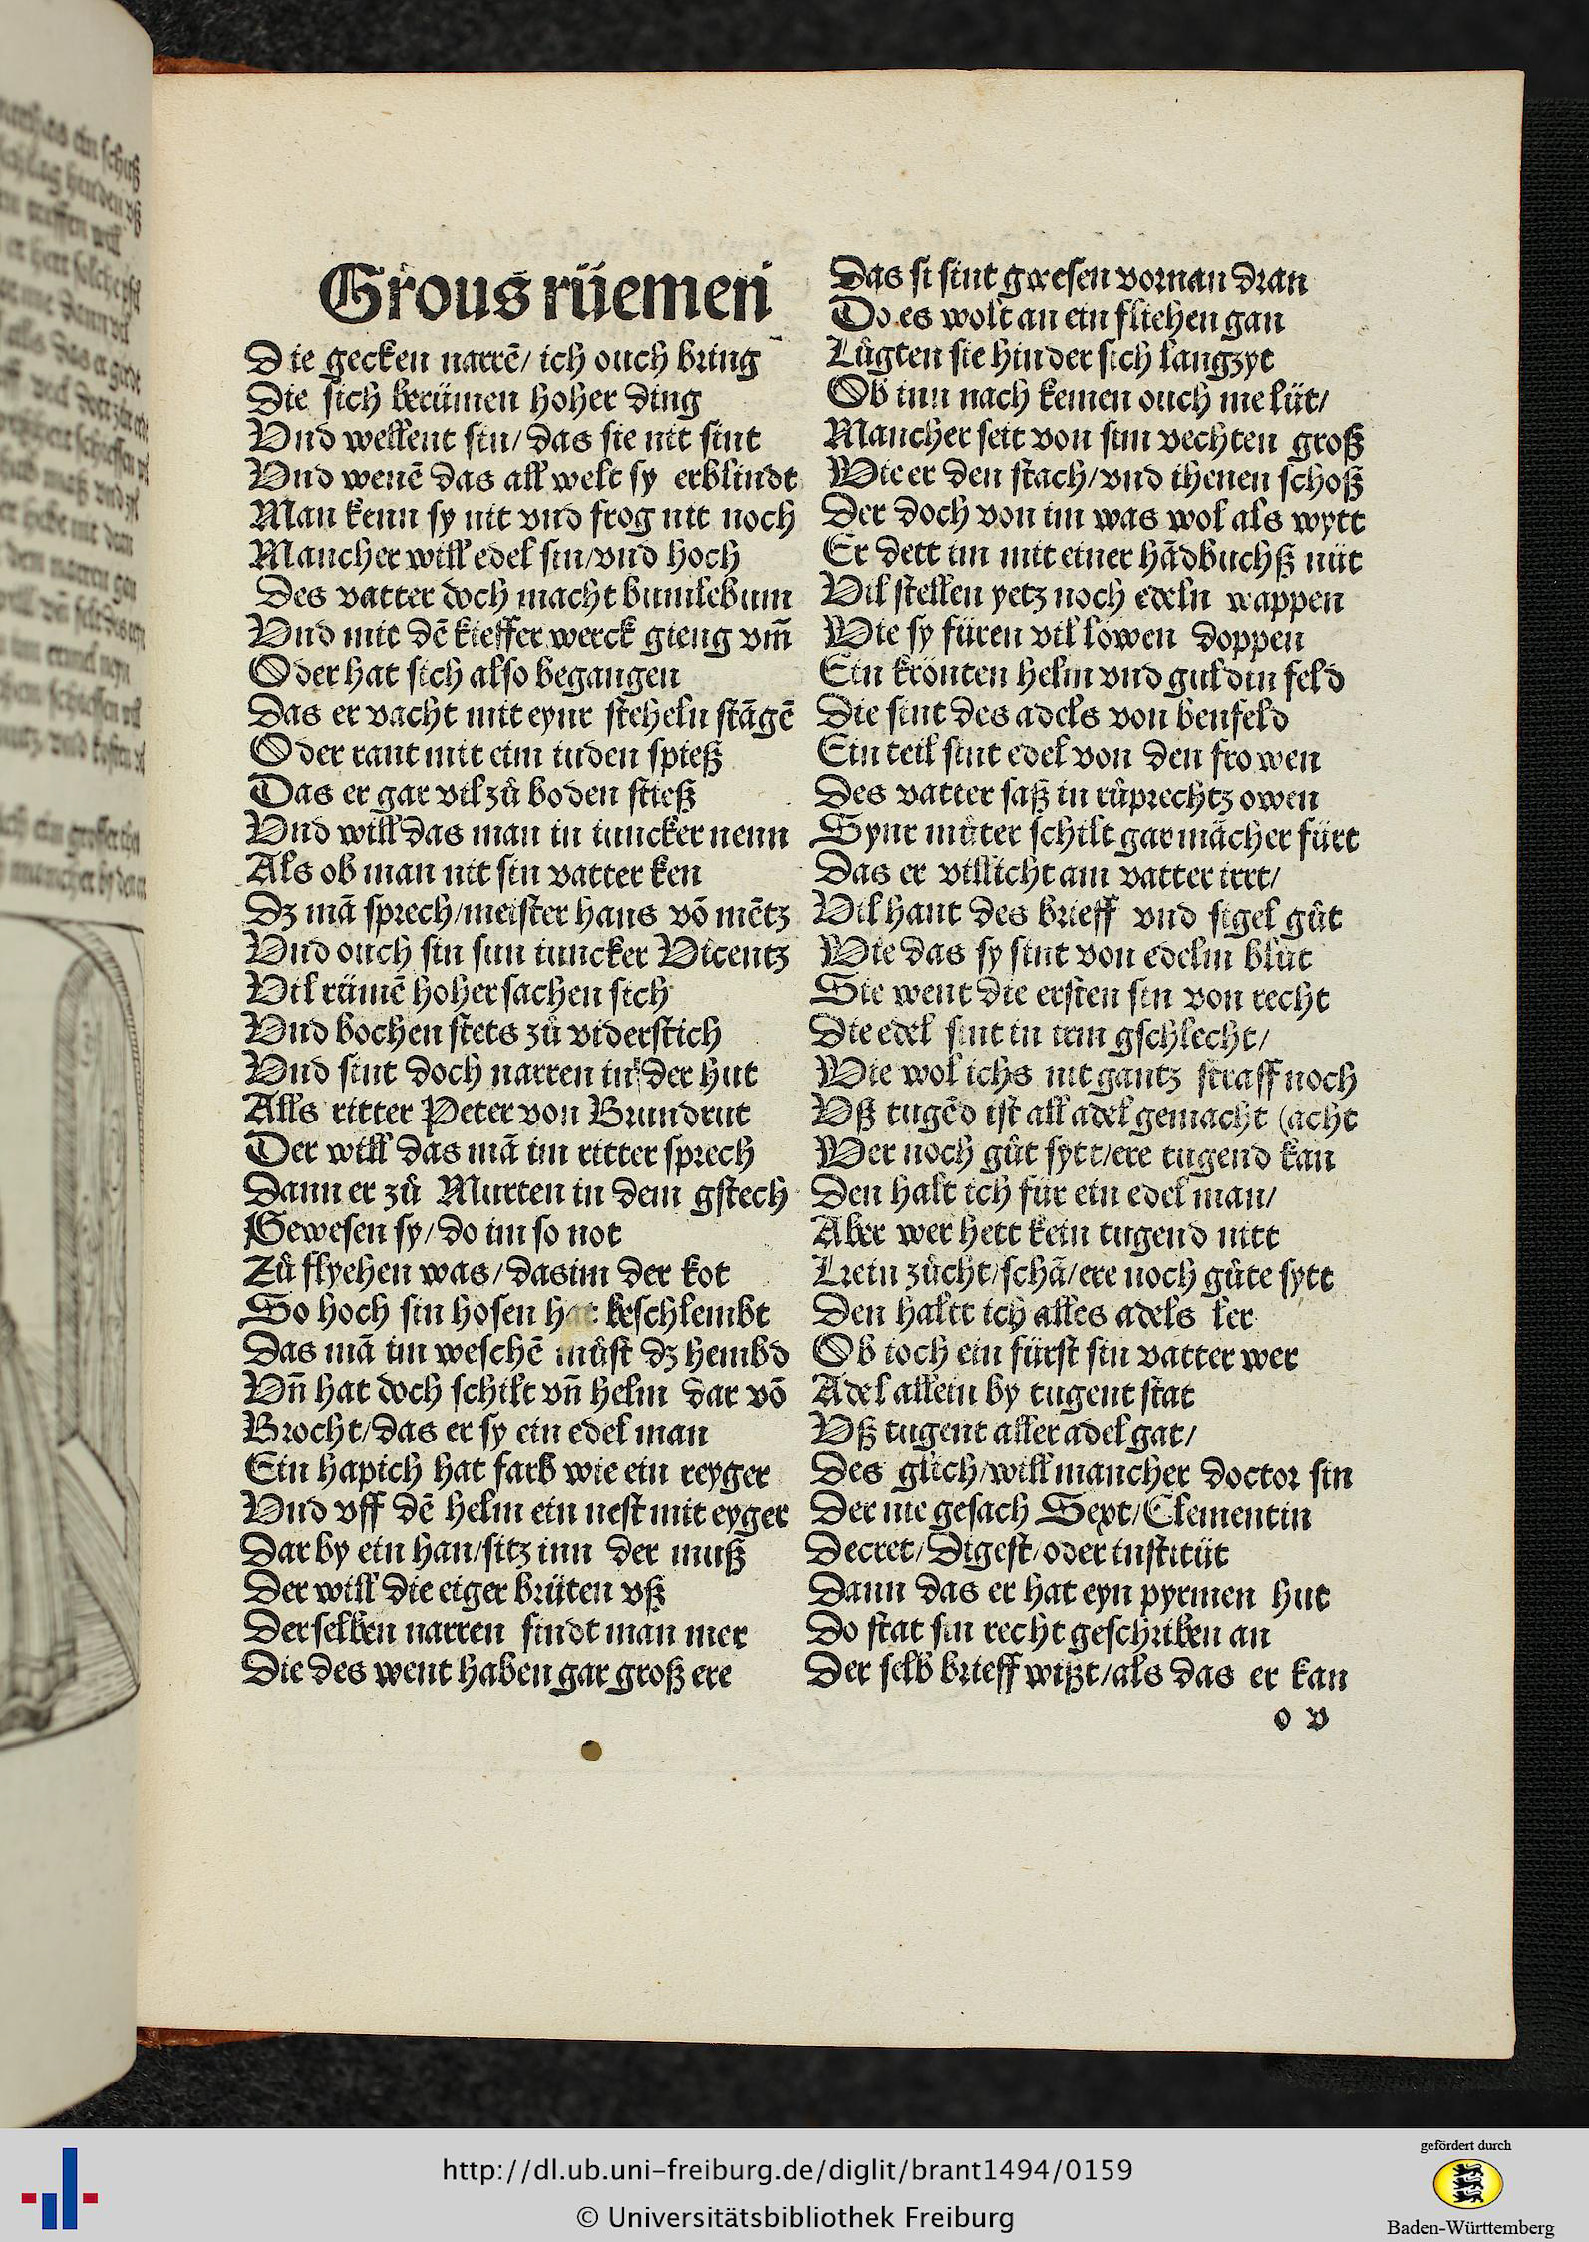 Grous rüemen
Die gecken narrẽ/ ich ouch bring
Die sich berümen hoher ding
Vnd wellent sin/ das sie nit sint
Vnd wenẽ das all welt sy erblindt
Man kenn sy nit vnd frog nit noch
Mancher will edel sin/vnd hoch
Des vatter doch macht bumlebum
Vnd mit dẽ kieffer werck gieng vm̃
Oder hat sich also begangen
Das er vacht mit eynr steheln stãgẽ
Oder rant mit eim iuden spieß
Das er gar vil zů boden stieß
Vnd will das man in iuncker nenn
Als ob man nit sin vatter ken
Dz mã sprech/meister hans võ mẽtz
Vnd ouch sin sun iuncker Vicentz
Vil rümẽ hoher sachen sich
Vnd bochen stets zů widerstich
Vnd sint doch narren in der hut
Alls ritter Peter von Brundrut
Der will das mã im ritter sprech
Dann er zů Murten in dem gstech
Gewesen sy/do im so not
Zů flyehen was/dasim der kot
So hoch sin hosen hat beschlembt
Das mã im weschẽ můst dz hembd
Vñ hat doch schilt vñ helm dar võ
Brocht/das er sy ein edel man
Ein hapich hat farb wie ein reyger
Vnd vff dẽ helm ein nest mit eyger
Dar by ein han/sitz inn der muß
Der will die eiger brüten vß
Derselben narren findt man mer
Die des went haben gar groß ere
Das si sint gwesen vornan dran
Do es wolt an ein fliehen gan
Lůgten sie hinder sich langzyt
Ob inn nach kemen ouch me lüt/
Mancher seit von sim vechten groß
Wie er den stach/vnd ihenen schoß
Der doch von im was wol als wytt
Er dett im mit einer hãdbuchß nüt
Vil stellen yetz noch edeln wappen
Wie sy füren vil lowen doppen
Ein krönten helm vnd guldin feld
Die sint des adels von benfeld
Ein teil sint edel von den frowen
Des vatter saß in růprechtz owen
Synr můter schilt gar mãcher fürt
Das er villicht am vatter irrt/
Vil hant des brieff vnd sigel gůt
Wie das sy sint von edelm blůt
Sie went die ersten sin von recht
Die edel sint in irm gschlecht/
Wie wol ichs nit gantz straff noch
Vß tugẽd ist all adel gemacht (acht
Wer noch gůt sytt/ere tugend kan
Den halt ich für ein edel man/
Aber wer hett kein tugend nitt
Kein zůcht/schã/ere noch gůte sytt
Den haltt ich alles adels ler
Ob ioch ein fürst sin vatter wer
Adel allein by tugent stat
Vß tugent aller adel gat/
Des glich/will mancher doctor sin
Der nie gesach Sext/Clementin
Decret/Digest/oder institüt
Dann das er hat eyn pyrmen hut
Do stat sin recht geschriben an
Der selb brieff wißt/als das er kan
o v
http://dl.ub.uni-freiburg.de/diglit/brant1494/0159
© Universitätsbibliothek Freiburg
gefördert durch
Baden-Württemberg